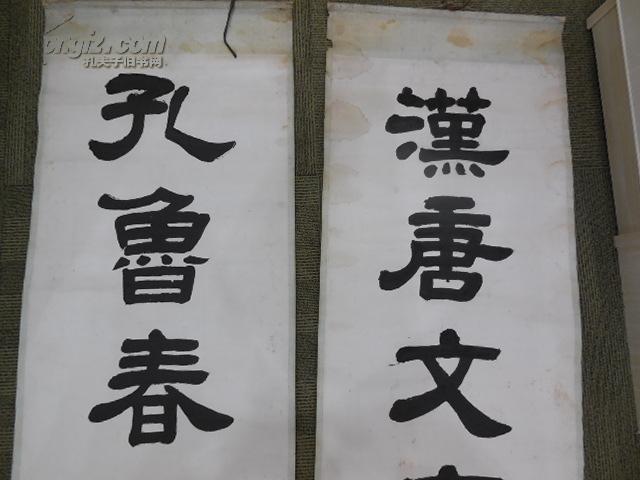 漢唐文
孔魯春
kongfz.com
孔夫子旧书网